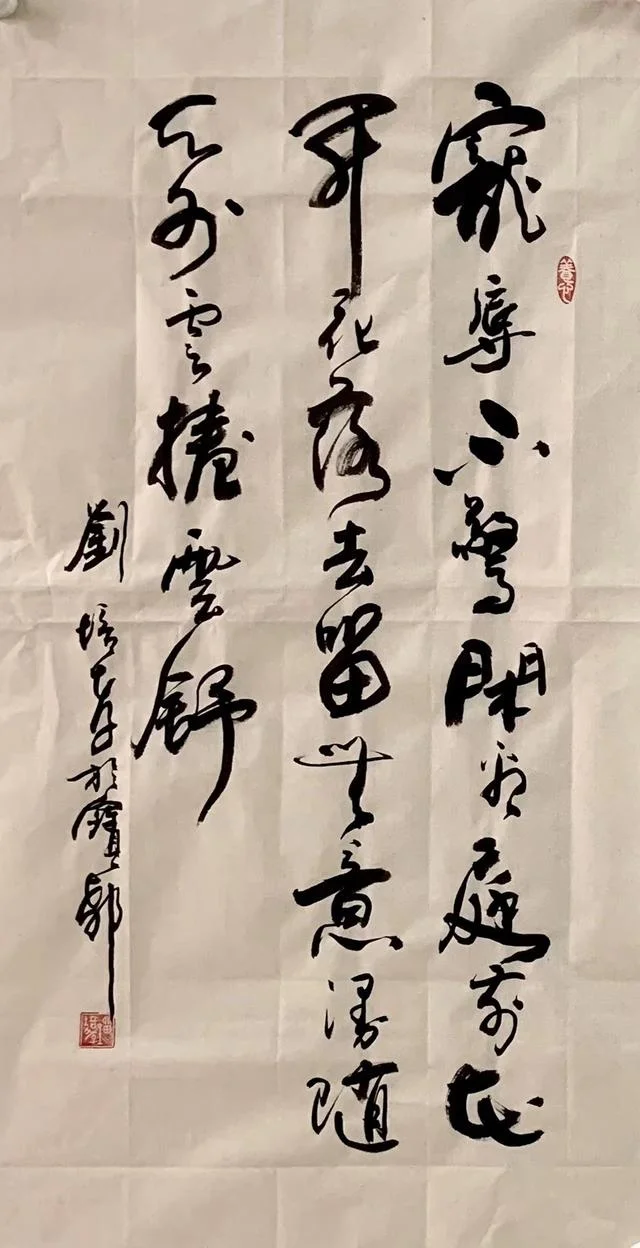 寵辱不驚閑看庭前花
開花落去留無意漫隨
天外雲捲雲舒
劉培